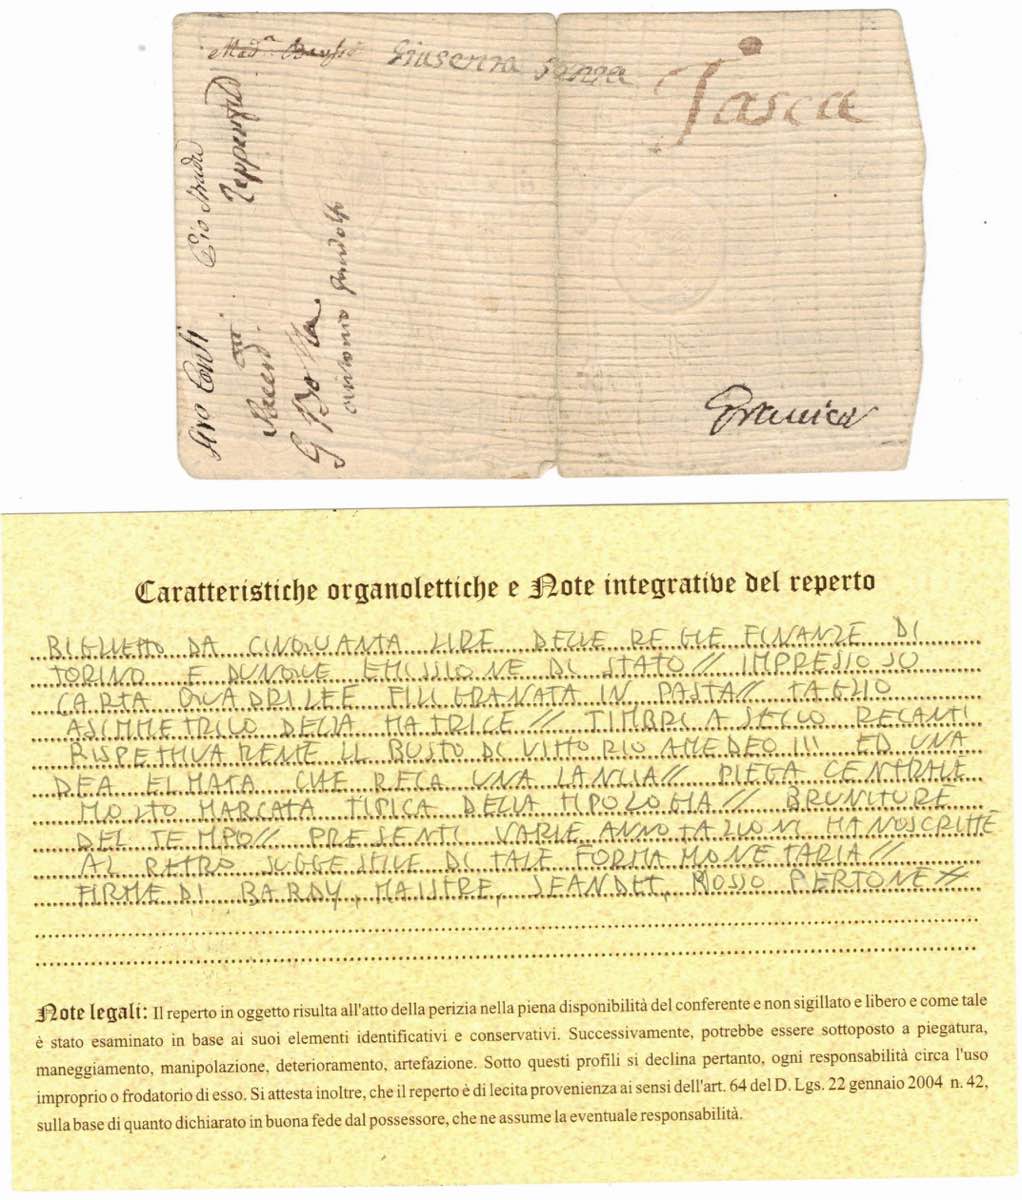 Giuseppa
Tasca
Gio
Siro Conti
G Botta
antonio
Caratteristiche organolettiche e Note integrative del reperto
BIGLIETTO DA CINQUANTA LIRE DELLE REGIE FINANZE DI
TORINO E DUNQUE EMISSIONE DI STATO // IMPRESSO SU
CARTA QUADRILEE FILIGRANATA IN PASTA // TAGLIO
ASIMMETRICO DELLA MATRICE // TIMBRI A SECCO RECANTI
RISPETTIVAMENTE IL BUSTO DI VITTORIO AMEDEO III ED UNA
DEA ELMATA CHE RECA UNA LANCIA // PIEGA CENTRALE
MOLTO MARCATA TIPICA DELLA TIPOLOGIA // BRUNITURE
DEL TEMPO // PRESENTI VARIE ANNOTAZIONI MANOSCRITTE
AL RETRO SUGGESTIVE DI TALE FORMA MONETARIA //
FIRME DI BARDY, MAISTRE, JEANDET, MOSSO PERTONE //
Note legali: Il reperto in oggetto risulta all'atto della perizia nella piena disponibilità del conferente e non sigillato e libero e come tale
è stato esaminato in base ai suoi elementi identificativi e conservativi. Successivamente, potrebbe essere sottoposto a piegatura,
maneggiamento, manipolazione, deterioramento, artefazione. Sotto questi profili si declina pertanto, ogni responsabilità circa l'uso
improprio o frodatorio di esso. Si attesta inoltre, che il reperto è di lecita provenienza ai sensi dell'art. 64 del D. Lgs. 22 gennaio 2004 n. 42,
sulla base di quanto dichiarato in buona fede dal possessore, che ne assume la eventuale responsabilità.